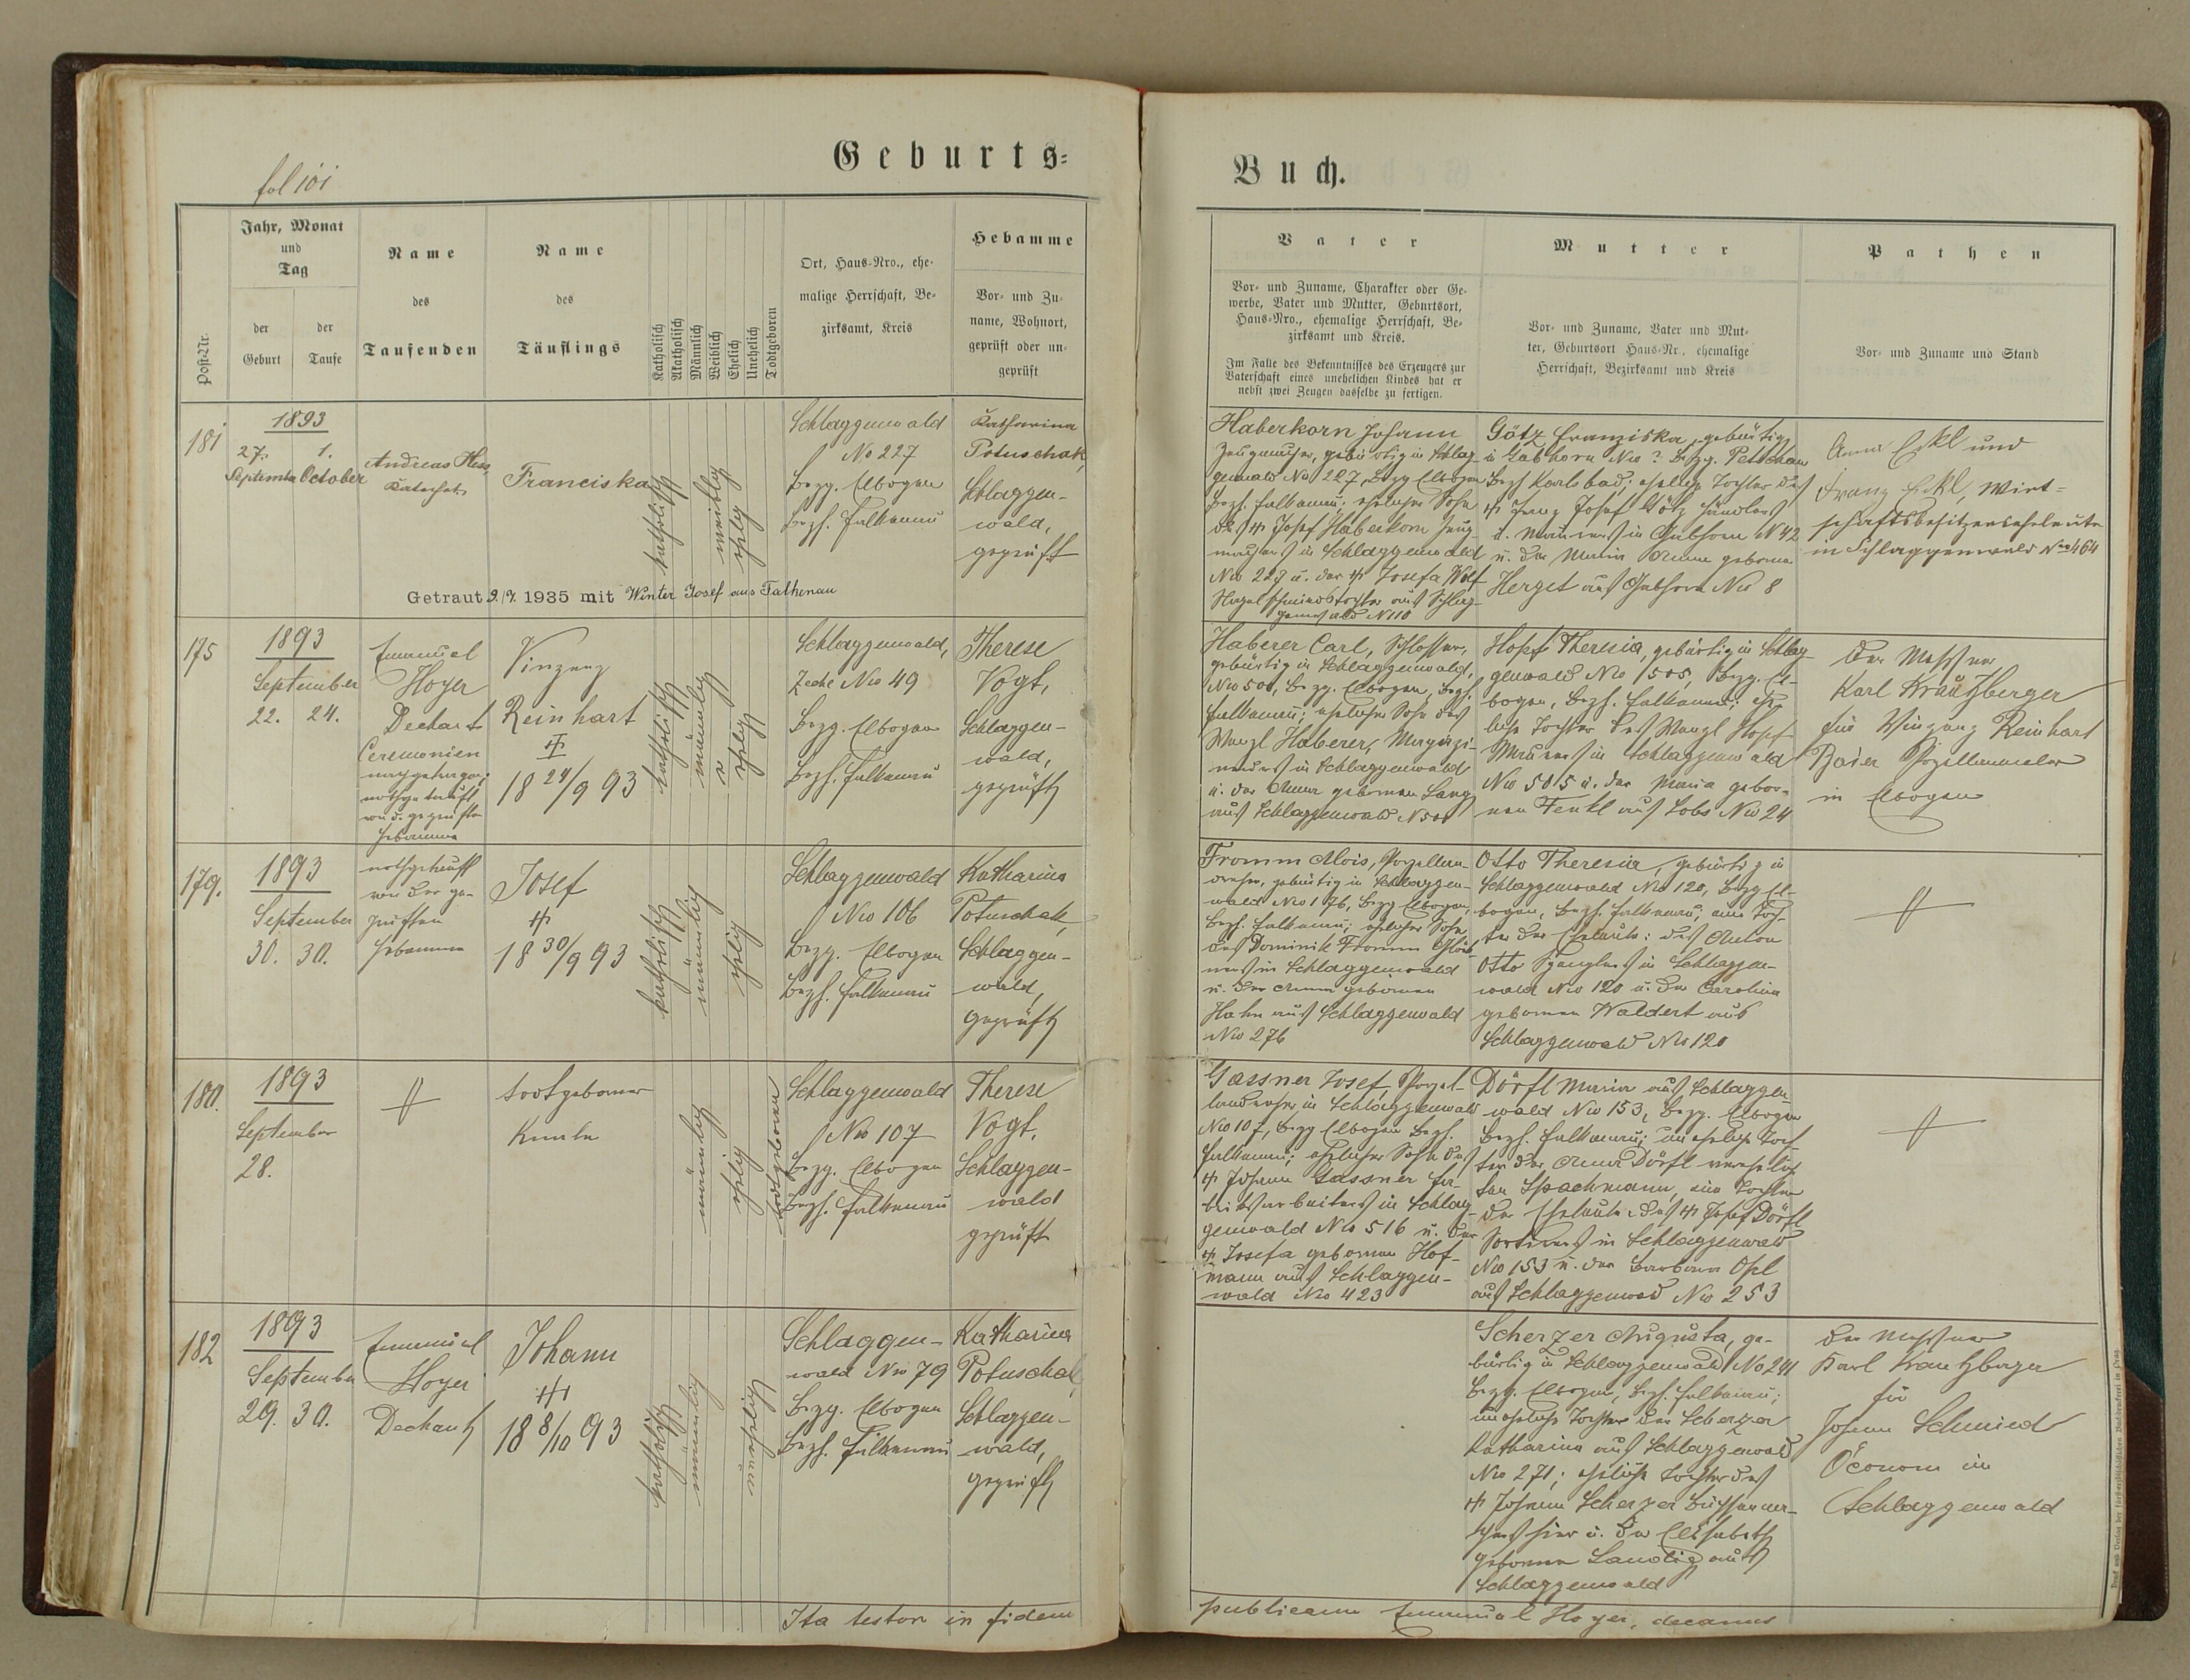 Geburts-
Buch.
fol 101
Post-Nr.
Jahr, Monat
und
Tag
der
Geburt
der
Taufe
Name
des
Taufenden
Name
des
Täuflings
Katholisch
Akatholisch
Männlich
Weiblich
Ehelich
Unehelich
Todtgeboren
Ort, Haus-Nro., ehe-
malige Herrschaft, Be-
zirksamt, Kreis
Hebamme
Vor- und Zu-
name, Wohnort,
geprüft oder un-
geprüft
Vater
Vor- und Zuname, Charakter oder Ge-
werbe, Vater und Mutter, Geburtsort,
Haus-Nro., ehemalige Herrschaft, Be-
zirksamt und Kreis.
Im Falle des Bekenntnisses des Erzeugers zur
Vaterschaft eines unehelichen Kindes hat er
nebst zwei Zeugen dasselbe zu fertigen.
Mutter
Vor- und Zuname, Vater und Mut-
ter, Geburtsort Haus-Nr., ehemalige
Herrschaft, Bezirksamt und Kreis
Pathen
Vor- und Zuname und Stand
181
1893
27.
September
1.
October
Andreas Hess,
Katechet
Franciska
katholisch
weiblich
ehelich
Schlaggenwald
No 227
Bezg. Elbogen
Bezh. Falkenau
Katharina
Potuschak,
Schlaggen-
wald,
geprüft
Haberkorn Johann
Zeugmacher, gebürtig in Schlag-
genwald Nro 227, Bezg Elbogen
Bezh. Falkenau; ehelicher Sohn
des † Josef Haberkorn Zeug-
machers in Schlaggenwald
Nro 227 u. der † Josefa Wolf
Nagelschmiedstochter aus Schlag-
genwald N 110
Götz Franziska, gebürtig
in Gabhorn Nro ? Bezg. Petschau
Bezh Karlsbad; eheliche Tochter des
† Franz Josef Götz Händlers
u. Maurers in Gabhorn N 42
u. der Maria Anna geborne
Herget aus Gabhorn Nro 8
Anna Eckl und
Franz Eckl, Wirt-
schaftsbesitzerseheleute
in Schlaggenwald Nro 464
Getraut 9./7. 1935 mit Winter Josef aus Falkenau
175
1893
September
22. 24.
Emanuel
Hoyer
Dechant
Ceremonien
nachgetragen;
nothgetauft
von d. geprüften
Hebamme
Vinzenz
Reinhart
†
18 24/9 93
katholisch
männlich
ehelich
Schlaggenwald,
Zeche Nro 49
Bezg. Elbogen
Bezh. Falkenau
Therese
Vogt,
Schlaggen-
wald,
geprüft
Haberer Carl, Schlosser,
gebürtig in Schlaggenwald,
Nro 501, Bezg. Elbogen, Bezh.
Falkenau; ehelicher Sohn des
Wenzl Haberer,
in Schlaggenwald
u. der Anna gebornen Lang
aus Schlaggenwald N 501
Hopf Theresia, gebürtig in Schlag-
genwald Nro 505, Bezg. El-
bogen, Bezh. Falkenau; ehe-
liche Tochter des Wenzl Hopf
Maurers in Schlaggenwald
Nro 505 u. der Maria gebor-
nen Fenkl aus Lobs Nro 24
Der Messner
Karl Krautzberger
für Vinzenz Reinhart
Baier Porzellanmaler
in Elbogen
179.
1893
September
30. 30.
nothgetauft
von der ge-
prüften
Hebamme
Josef
†
18 30/9 93
katholisch
männlich
ehelich
Schlaggenwald
Nro 106
Bezg. Elbogen
Bezh. Falkenau
Katharina
Potuschak,
Schlaggen-
wald,
geprüft
Fromm Alois, Porzellan-
dreher, gebürtig in Schlaggen-
wald Nro 176, Bezg Elbogen,
Bezh. Falkenau; ehelicher Sohn
des Dominik Fromm
in Schlaggenwald
u. der Anna gebornen
Hahn aus Schlaggenwald
Nro 276
Otto Theresia, gebürtig in
Schlaggenwald Nro 120, Bezg El-
bogen, Bezh. Falkenau; eine Toch-
ter der Eheleute: des Anton
Otto Spenglers in Schlaggen-
wald Nro 120 u. der Carolina
gebornen Waldert aus
Schlaggenwald Nro 120
180.
1893
September
28.
todtgeborner
Knabe
männlich
ehelich
todtgeboren
Schlaggenwald
Nro 107
Bezg. Elbogen
Bezh. Falkenau
Therese
Vogt,
Schlaggen-
wald
geprüft
Gassner Josef, Porzel-
landreher in Schlaggenwald
Nro 107, Bezg Elbogen Bezh.
Falkenau; ehelicher Sohn des
† Johann Gassner Fa-
briksarbeiters in Schlag-
genwald Nro 516 u. der
† Josefa gebornen Hof-
mann aus Schlaggen-
wald Nro 423
Dörfl Maria aus Schlaggen-
wald Nro 153, Bezg. Elbogen
Bezh. Falkenau; uneheliche Toch-
ter der Anna Dörfl verehelich-
ten Spachmann, eine Tochter
der Eheleute des † Josef Dörfl
Sortirers in Schlaggenwald
Nro 153 u. der Barbara Opl
aus Schlaggenwald Nro 253
182
1893
September
29. 30.
Emanuel
Hoyer
Dechant
Johann
†
18 8/10 93
katholisch
männlich
unehelich
Schlaggen-
wald Nro 79
Bezg. Elbogen
Bezh. Falkenau
Katharina
Potuschak,
Schlaggen-
wald,
geprüft
Scherzer Augusta, ge-
bürtig in Schlaggenwald No 241
Bezg. Elbogen, Bezh. Falkenau;
uneheliche Tochter der Scherzer
Katharina aus Schlaggenwald
Nro 271; eheliche Tochter des
† Johann Scherzer
hier u. der Elisabeth
geborne aus
Schlaggenwald
Der Messner
Karl Krautzberger
für
Johann Schmied
Öconom in
Schlaggenwald
Ita testor in fidem
publicam Emanuel Hoyer, decanus